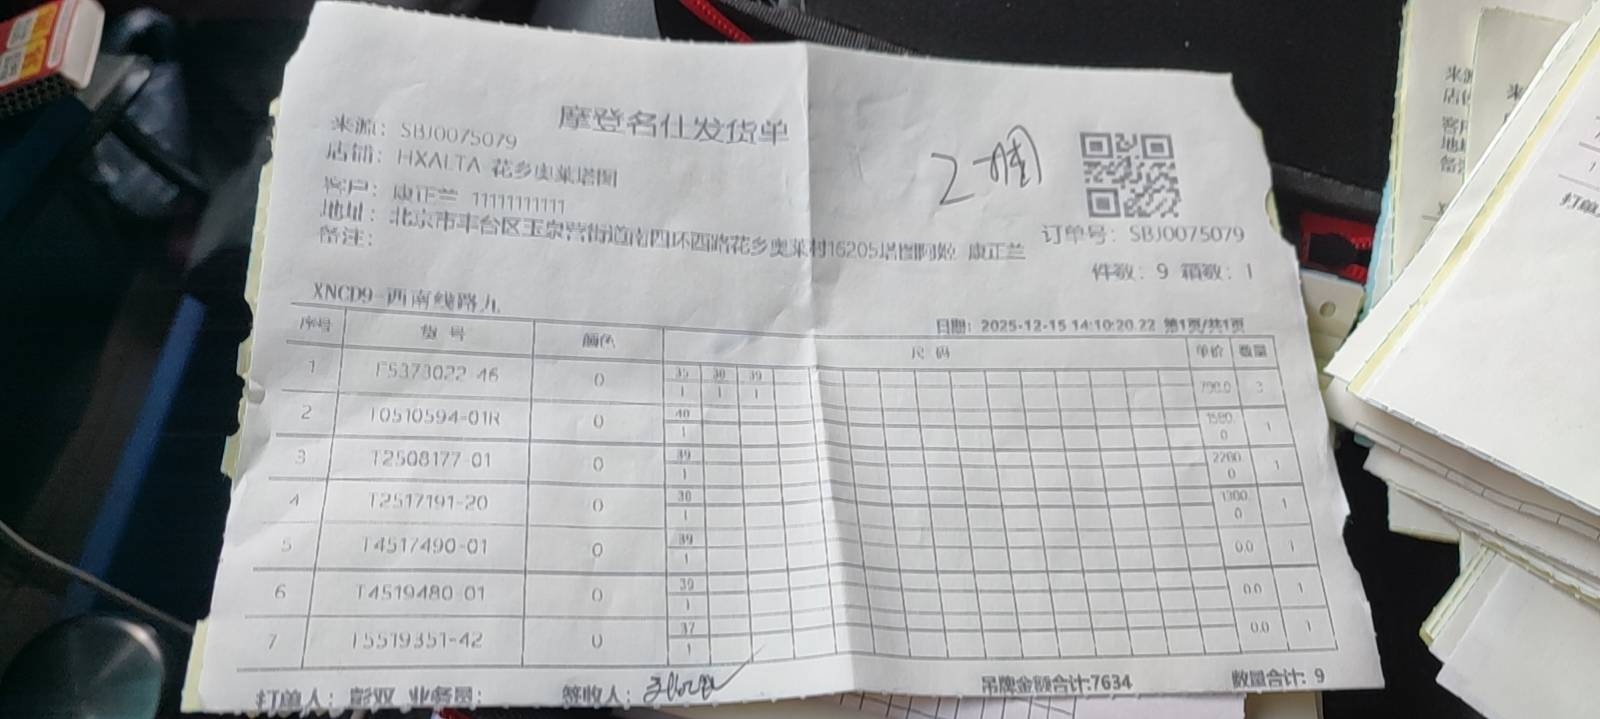 摩登名仕发货单
来源: SBJ0075079
店铺: HXALTA 花乡奥莱塔图
客户: 康正兰 11111111111
地址: 北京市丰台区玉泉营街道南四环西路花乡奥莱村16205塔图阿姬 康正兰
备注:
订单号: SBJ0075079
件数: 9 箱数: 1
XNCD9-西南线路九
日期: 2025-12-15 14:10:20.22 第1页/共1页
序号 货号 颜色 尺码 单价 数量
1 0 35 39 3
1 1 1
2 T0510594-01R 0 40 1
1
3 T2508177-01 0 39 1
1
4 T2517191-20 0 1300.0 1
1
5 T4517490-01 0 39 0.0 1
1
6 T4519480-01 0 39 0.0 1
1
7 0 37 0.0 1
1
打单人: 彭双 业务员: 签收人: 吊牌金额合计:7634 数量合计: 9